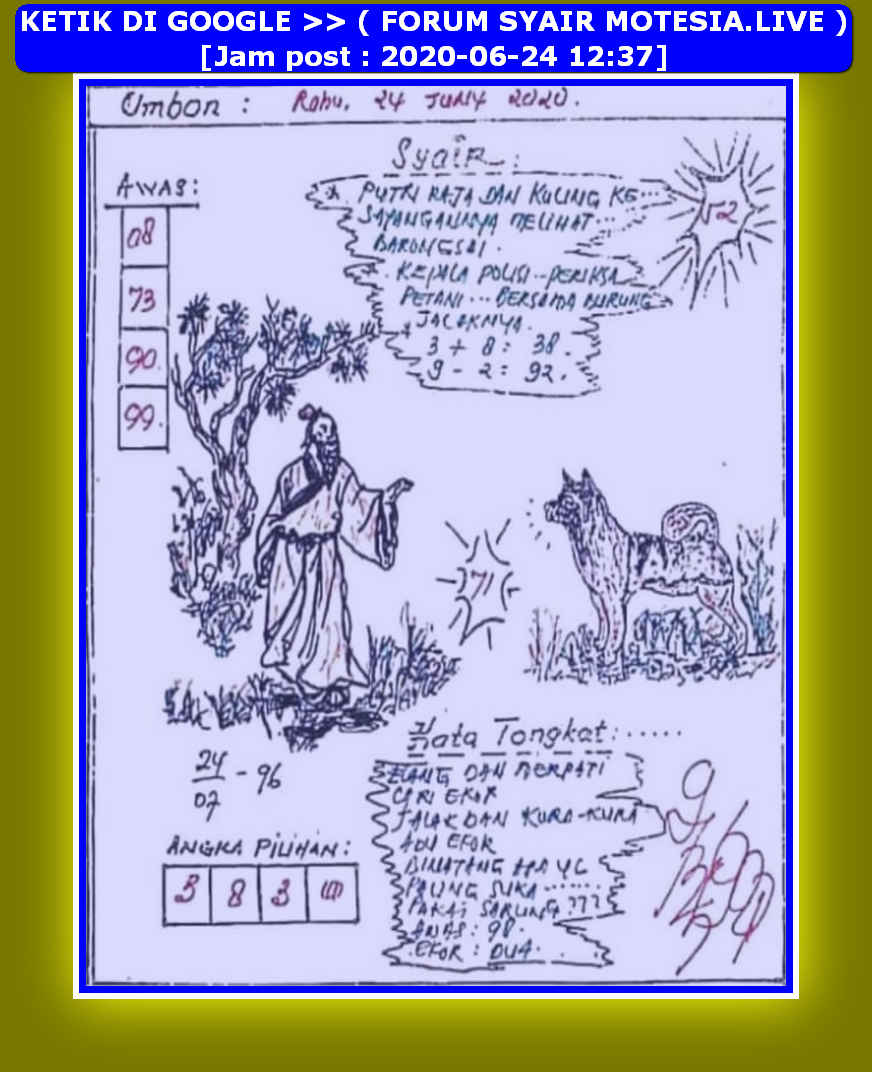 KETIK DI GOOGLE >> ( FORUM SYAIR MOTESIA.LIVE )
[Jam post : 2020-06-24 12:37]
Umbon : Rabu, 24 JUNY 2020.
SyaiR :
AWAS :
08
73
90.
99.
PUTRI RAJA DAN KUCING KE...
SAYANGANNYA MELIHAT...
BARONGSAI.
KEPALA POLISI..PERIKSA
PETANI...BERSAMA BURUNG
JALAKNYA.
3 + 8 = 38.
9 - 2 = 92.
52
71
24
07 - 96
Mata Tongkat:.....
ELANG DAN MERPATI
CARI EKOR
JALAK DAN KURA-KURA
ADU EKOR
BINATANG APA YG
PALING SUKA.......
PAKAI SARUNG???
AWAS: 98.
EKOR: DUA.
ANGKA PILIHAN:
3 8 3
9